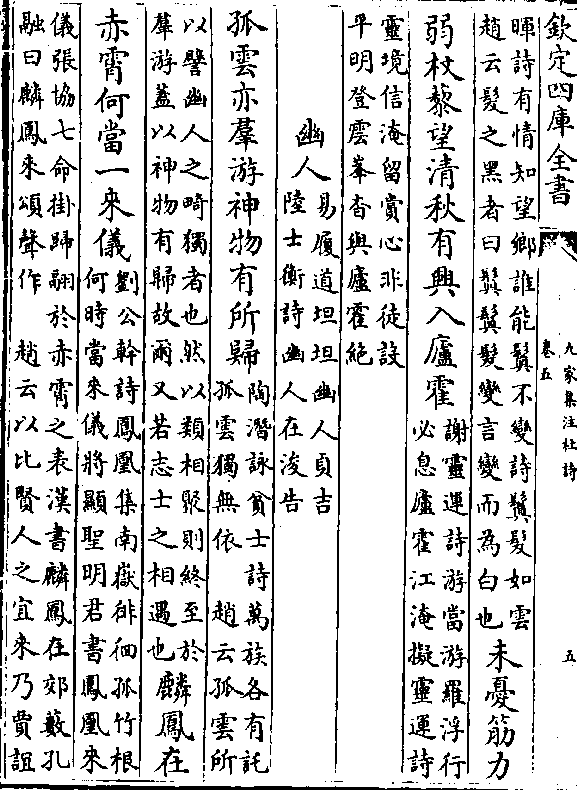 欽定四庫全書
九家集注杜詩
卷五
五
暉詩有情知望鄉誰能鬒不變詩鬒髮如雲
趙云髮之黑者曰鬒鬒髮變言變而為白也
未憂筋力
弱杖藜望清秋有興入廬霍
謝靈運詩游當游羅浮行
必息廬霍江淹擬靈運詩
靈境信淹留賞心非徒設
平明登雲峯杳與廬霍絶
幽人
易履道坦坦幽人貞吉
陸士衡詩幽人在浚谷
孤雲亦羣游神物有所歸
陶潛詠貧士詩萬族各有託
孤雲獨無依 趙云孤雲所
以譬幽人之畸獨者也然以類相聚則終至於
羣游蓋以神物有歸故爾又若志士之相遇也
麟鳳在
赤霄何當一來儀
劉公幹詩鳳凰集南嶽徘徊孤竹根
何時當來儀將顯聖明君書鳳凰來
儀張協七命掛歸翮於赤霄之表漢書麟鳳在郊藪孔
融曰麟鳳來頌聲作 趙云以比賢人之宜來乃賈誼